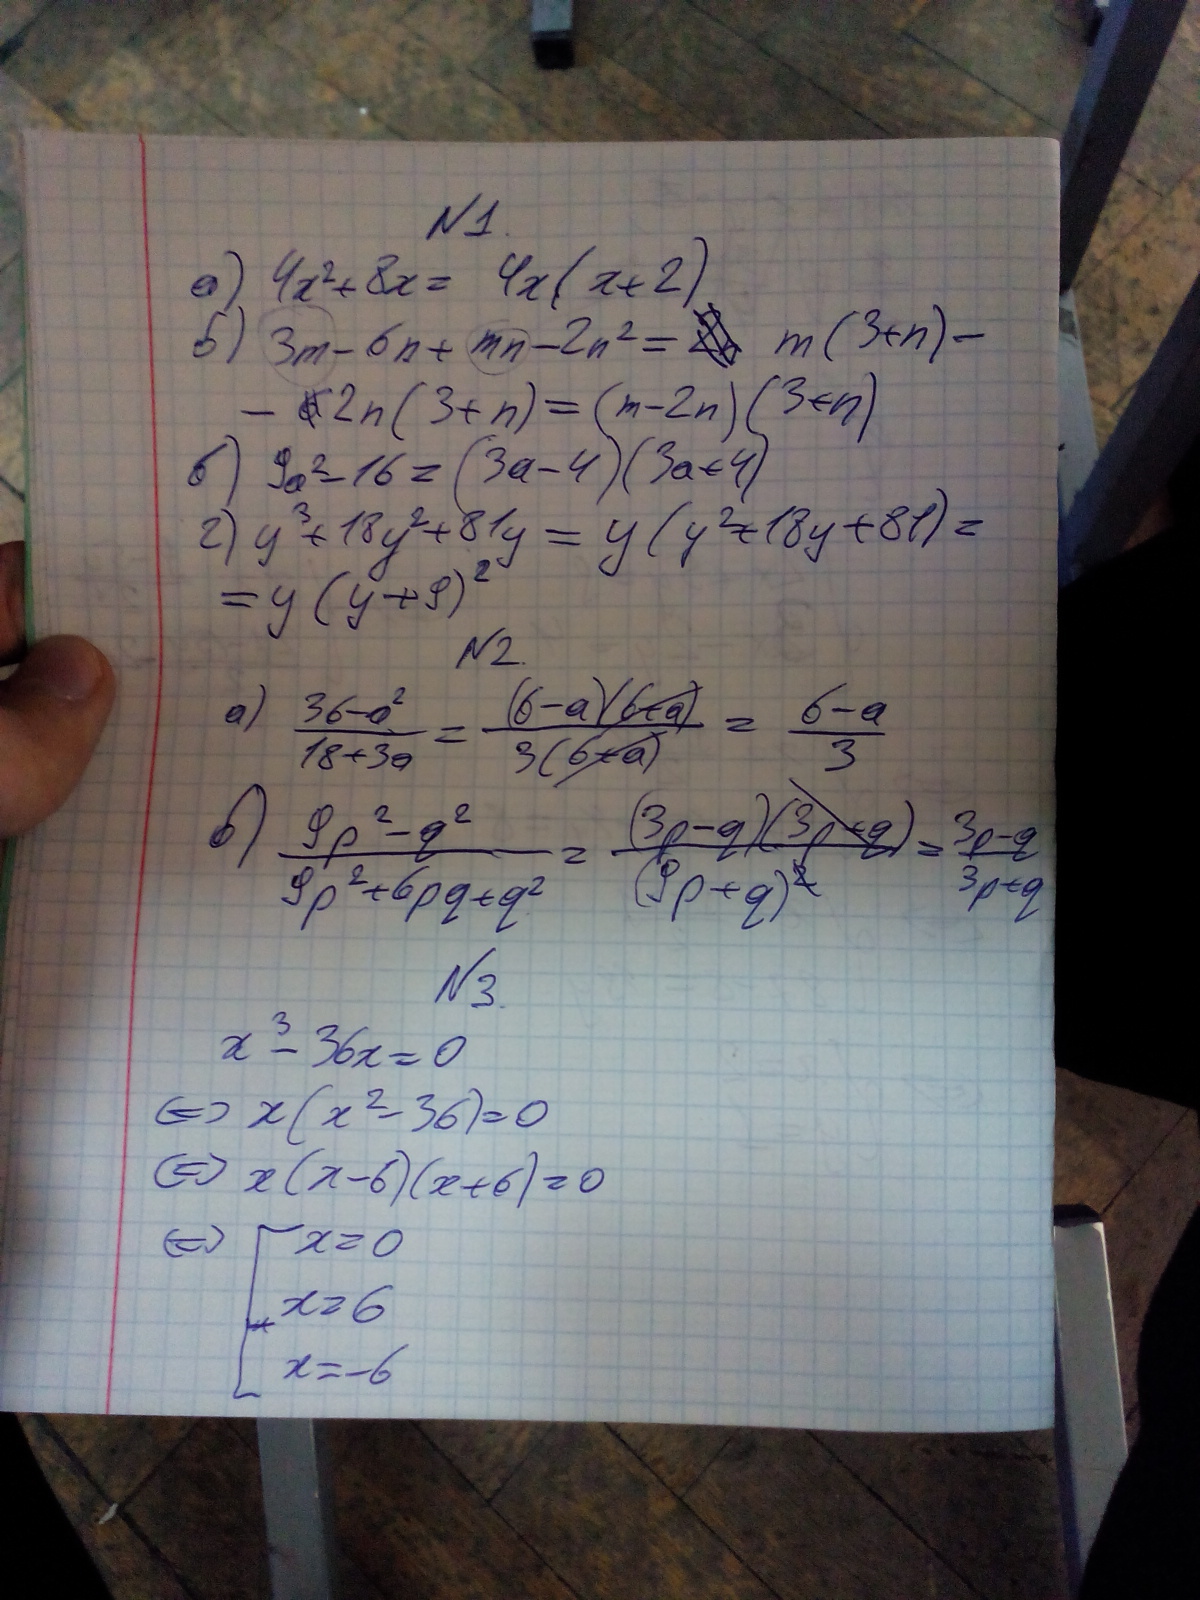 N1.
а) 4x²+8x= 4x(x+2)
б) 3m-6n+mn-2n²= m(3+n)-
-2n(3+n)=(m-2n)(3+n)
в) 9a²-16=(3a-4)(3a+4)
г) y³+18y²+81y=y(y²+18y+81)=
=y(y+9)²
N2.
а) (36-a²)/(18+3a) = ((6-a)(6+a))/(3(6+a)) = (6-a)/3
б) (9p²-q²)/(9p²+6pq+q²) = ((3p-q)(3p+q))/((9p+q)²) = (3p-q)/(3p+q)
N3.
x³-36x=0
⇔ x(x²-36)=0
⇔ x(x-6)(x+6)=0
⇔ [ x=0
x=6
x=-6